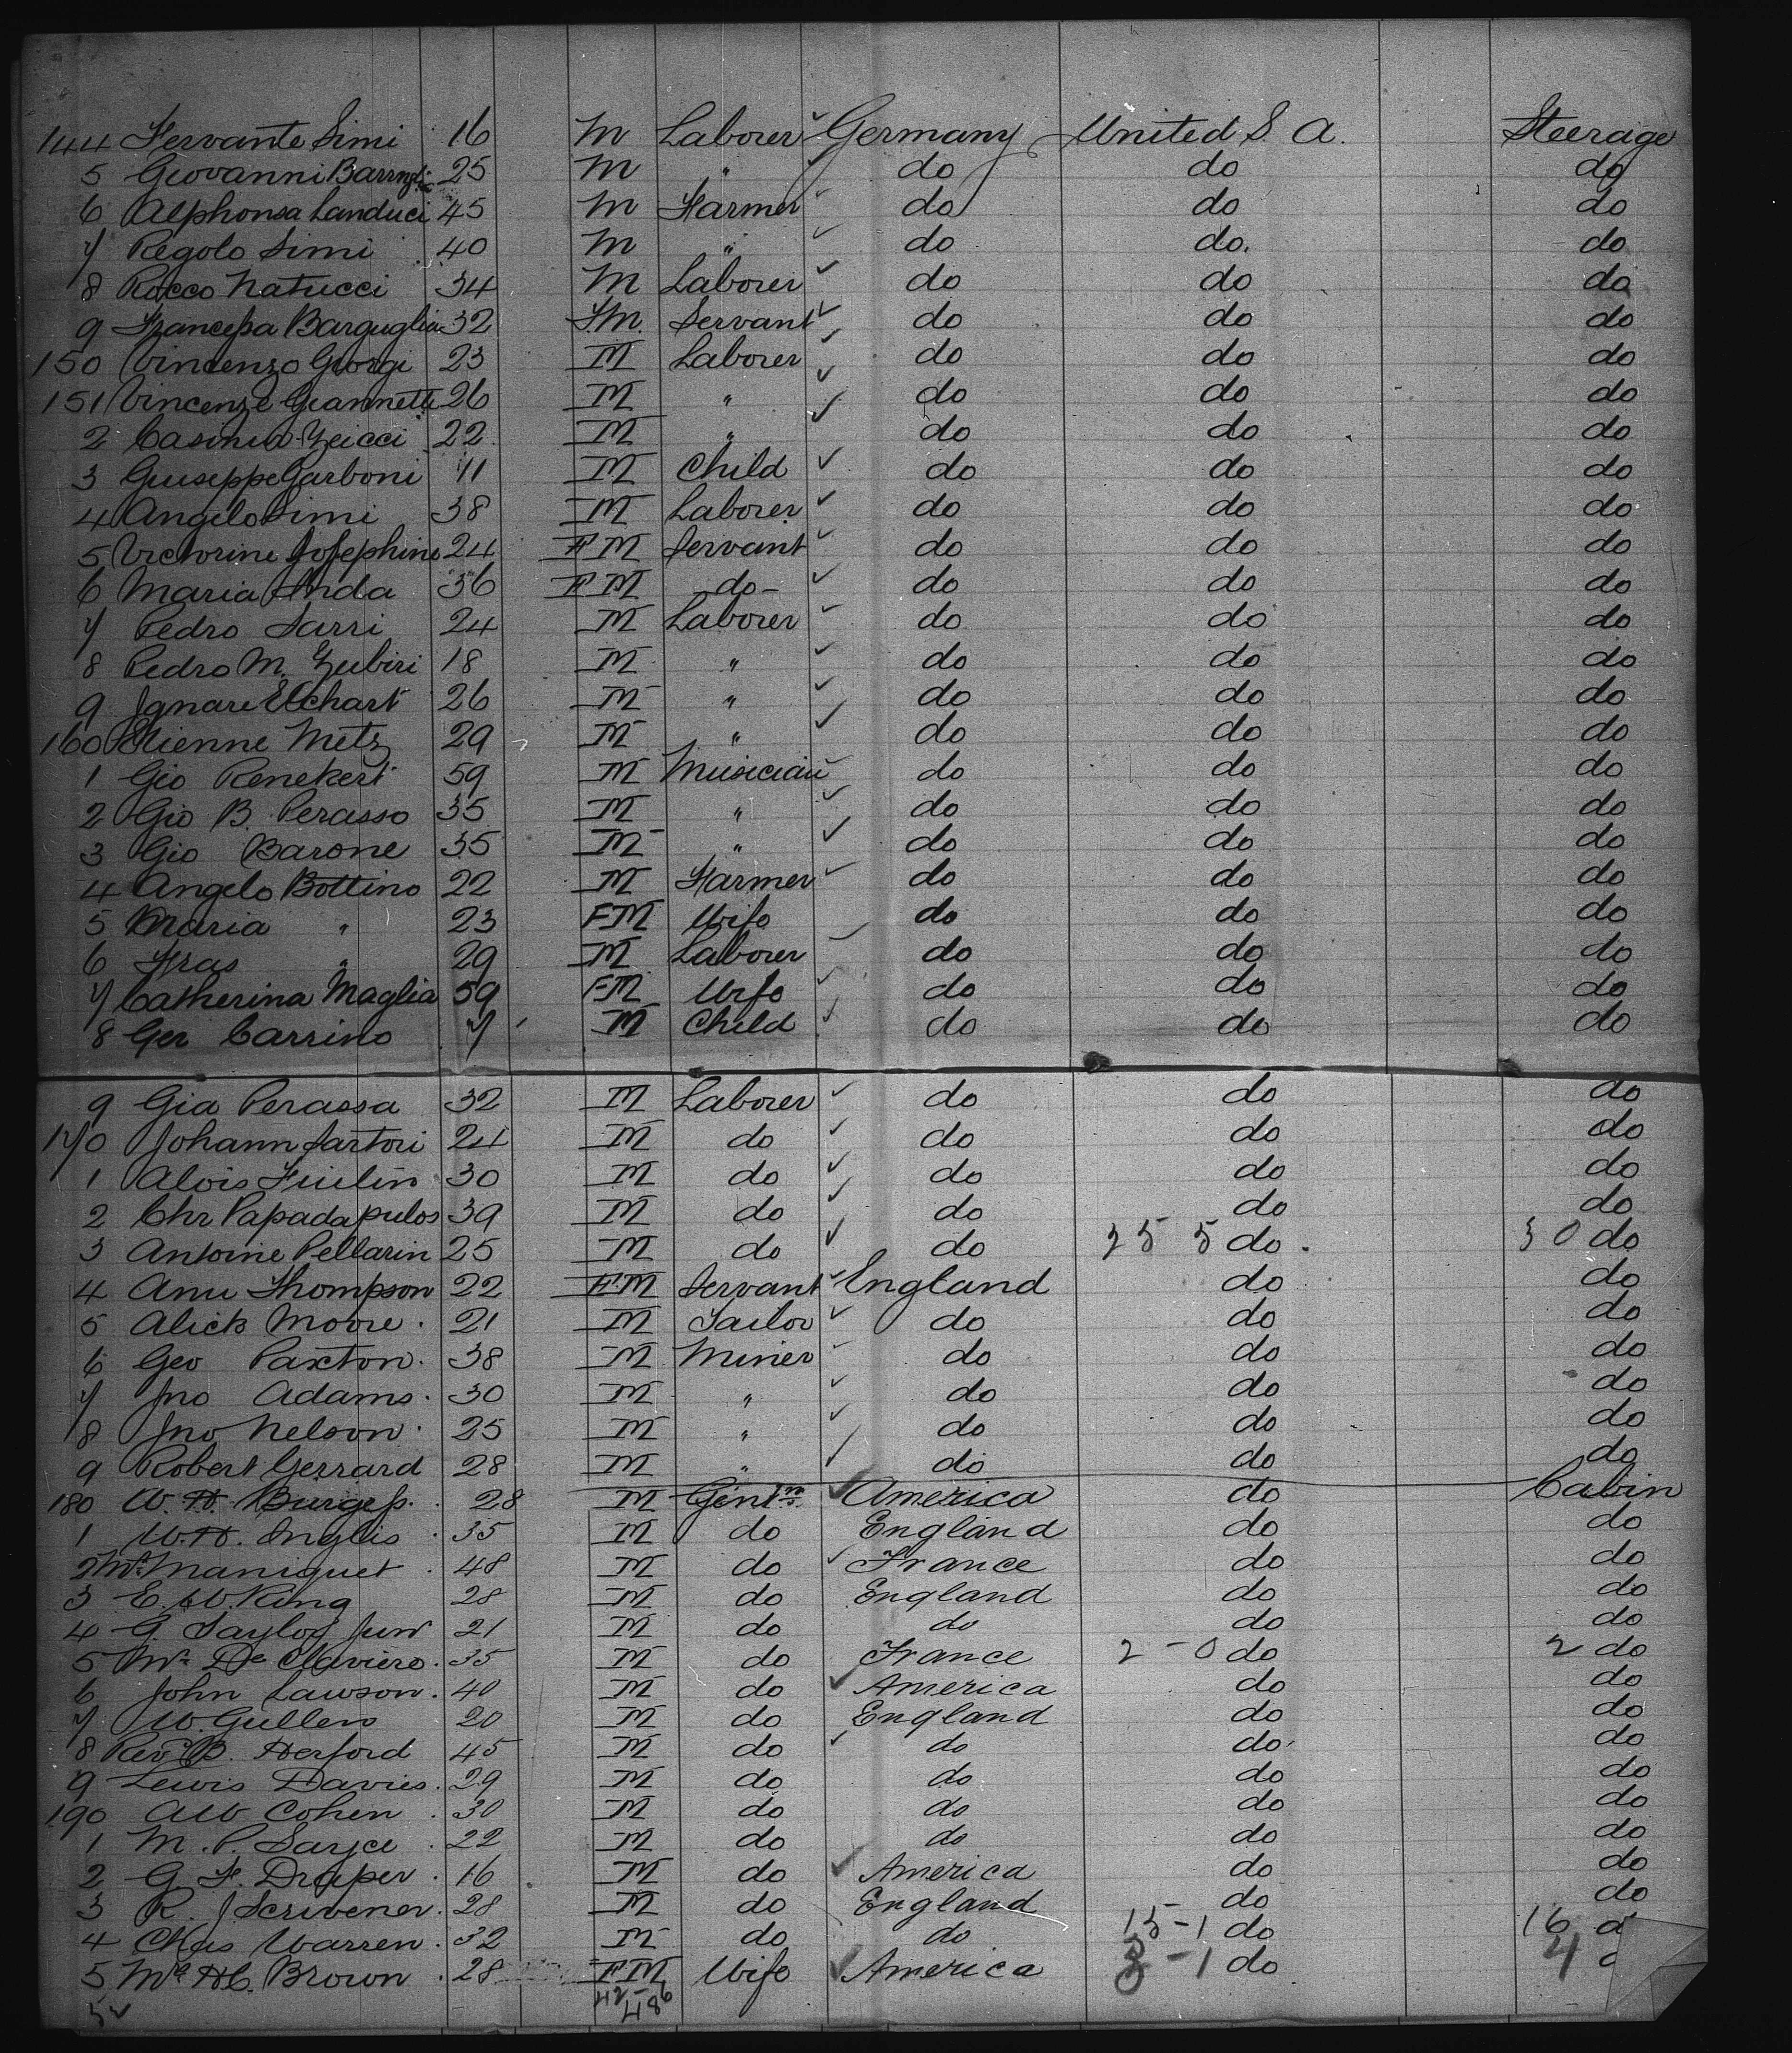 144 Servante Simi 16 M Laborer Germany United S. A. Steerage
5 Giovanni 25 M " do do do
6 Alphonsa Landuci 45 M Farmer do do do
7 Regolo Simi 40 M " do do. do
8 Rocco Natucci 34 M Laborer do do do
9 Francessa Barguglia 32 F.M. Servant do do do
150 Vincenzo Giorgi 23 M Laborer do do do
151 Vincenze Giannette 26 M " do do do
2 22 M " do do do
3 Giuseppe Garboni 11 M Child do do do
4 Angelo Simi 38 M Laborer do do do
5 Victorine Josephine 24 FM Servant do do do
6 Maria Anda 36 FM do do do do
7 Pedro Sarri 24 M Laborer do do do
8 Pedro M. Zubiri 18 M " do do do
9 Ignare Elchart 26 M " do do do
160 Etienne Metz 29 M " do do do
1 Gio Renekert 59 M Musician do do do
2 Gio B. Perasso 35 M " do do do
3 Gio Barone 35 M " do do do
4 Angelo Bottino 22 M Farmer do do do
5 Maria " 23 FM Wife do do do
6 Fras " 29 M Laborer do do do
7 Catherina Maglia 59 FM Wife do do do
8 Ger Carrino 7 M Child do do do
9 Gia Perassa 32 M Laborer do do do
170 Johann Sartori 24 M do do do do
1 Alois 30 M do do do do
2 Chr Papadapulos 39 M do do do do
3 Antoine Pellarin 25 M do do 25 5 do. 30 do
4 Ann Thompson 22 FM Servant England do do
5 Alick Moore. 21 M Sailor do do do
6 Geo Paxton. 38 M Miner do do do
7 Jno Adams. 30 M " do do do
8 Jno Nelson. 25 M " do do do
9 Robert Gerrard 28 M " do do do
180 W. H. Burgess. 28 M Gentn America do Cabin
1 W. H. Inglis. 35 M do England do do
2 Mr. Maniquet. 48 M do France do do
3 E. W. King 28 M do England do do
4 G. Taylor Junr 21 M do do do do
5 Mr. De Claviere. 35 M do France 2 - 0 do 2 do
6 John Lawson. 40 M do America do do
7 W. Gullen 20 M do England do do
8 Revd B. Herford 45 M do do do do
9 Lewis Davies. 29 M do do do do
190 A W Cohen. 30 M do do do do
1 M. P. Sayce. 22 M do do do do
2 G. F. Draper. 16 M do America do do
3 R. J Scrivener. 28 M do England do do
4 Chas Warren. 32 M do do 15 - 1 do 16
5 H. C. Brown. 28 FM Wife America 3 - 1 do 4
42 - 6
48